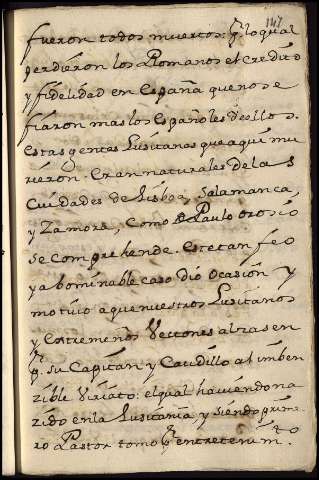 147
fueron todos muertos: p. lo qual
perdieron los Romanos el credito
y fidelidad en españa que no se
fiaron mas los españoles de ellos.
estas gentes Lusitanas que aqui mu
rieron. Eran naturales de las
Ciudades de Lisboa, Salamanca,
y Zamora, Como Paulo orosio
se comprehende. este tan feo
y abominable caso dió ocasión y
motiuo a que nuestros Lusitanos
y estremeños Vectones alzasen
p. su Capitán y Caudillo al imben
zible Viriato: el qual hauiendo na
zido en la Lusitania y siendo prime
ro Pastor tomo p. entretenim.to